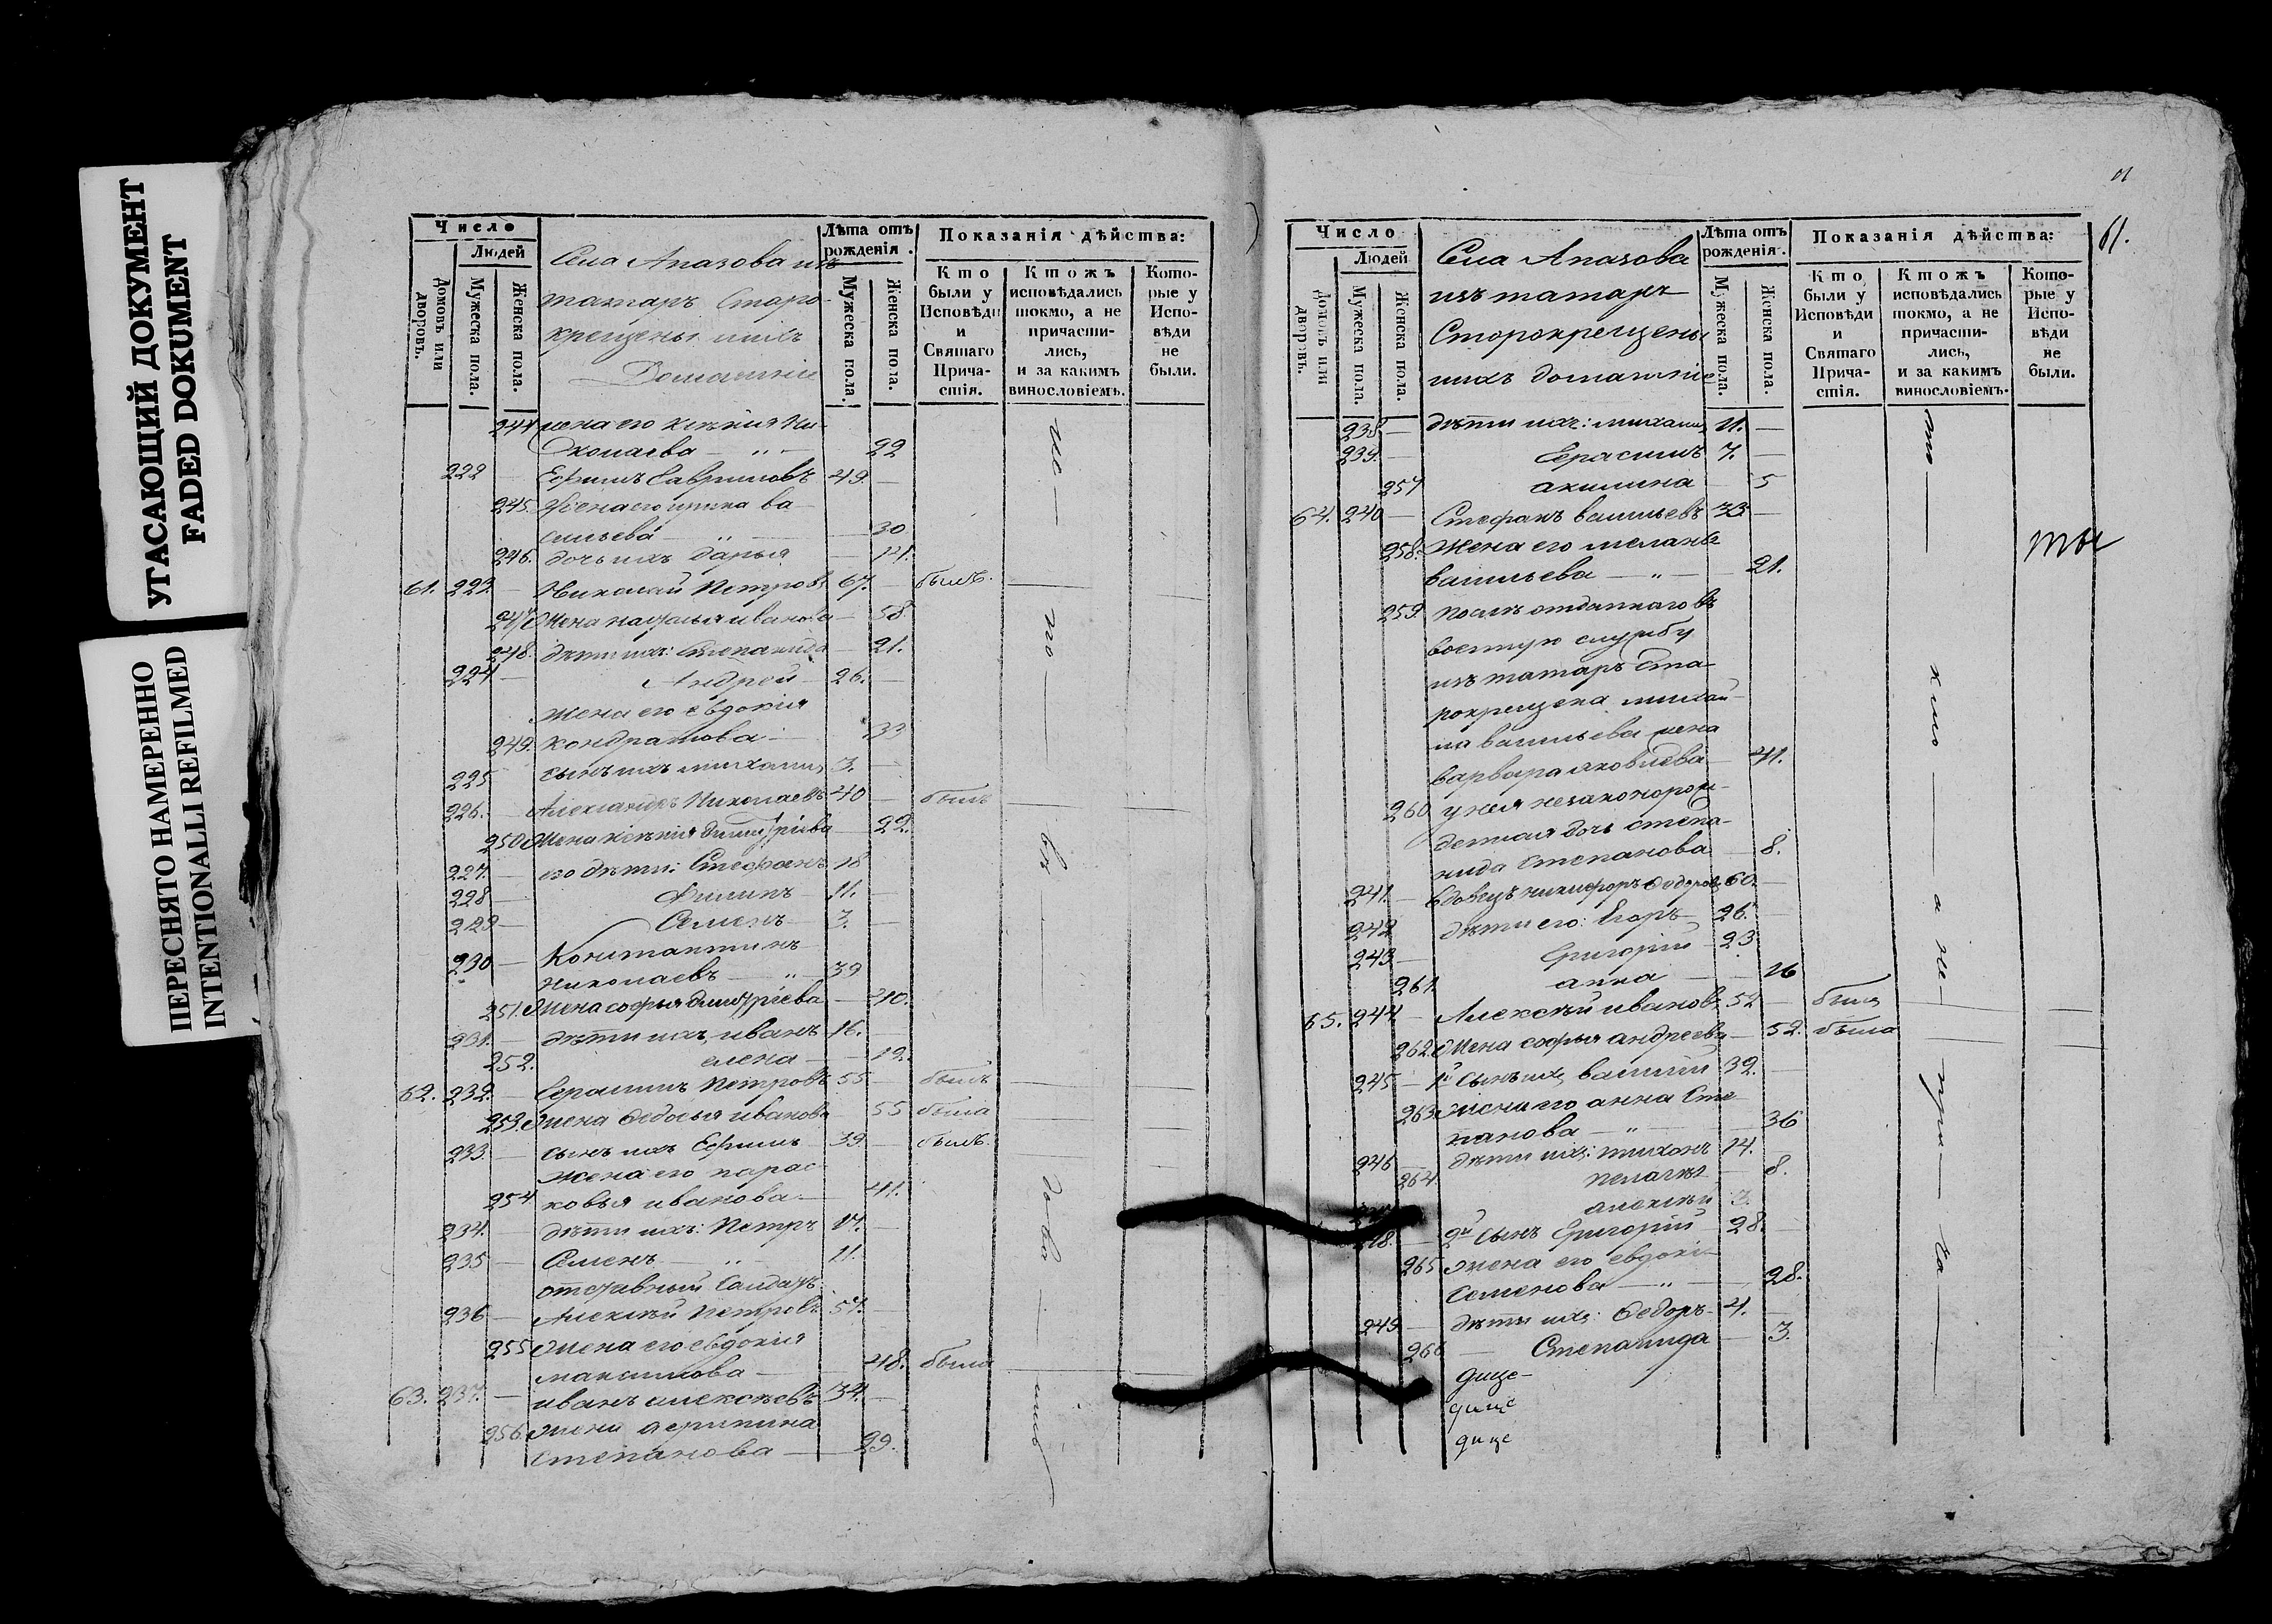 УТАСАЮЩИЙ ДОКУМЕНТ
FADED DOKUMENT
ПЕРЕСНЯТО НАМЕРЕННО
INTENTIONALLI REFILMED
Число
Людей
Домовъ или дворовъ.
Мужеска пола.
Женска пола.
Села Апазова изъ
татаръ Старо-
крещены ихъ
Домашніе
Лѣта отъ рожденія.
Мужеска пола.
Женска пола.
Показанія дѣйства:
Кто были у Исповѣди и Святаго Прича-стія.
Ктожъ исповѣдались токмо, а не причасти-лись, и за какимъ винословіемъ.
Кото-рые у Испо-вѣди не были.
244 жена его Ксенія Ни-
колаева — 22
222 — Ефимъ Гавриловъ 49. —
245. Жена его Ирина Ва-
сильева — 30
246. дочь ихъ Дарья — 14.
61. 223. — Николай Петровъ 67. — былъ.
247 Жена Наталья Иванова — 58.
248. дѣти ихъ: Степанида — 21.
224 — Андрей — 26. —
Жена его Евдокія
249. Кондратова — 33
225 сынъ ихъ Михаилъ 3. —
226. — Александръ Николаевъ 40 — былъ
250 Жена Ксенія Димитріева — 22.
227. — его дѣти: Стефанъ 18
228 — Филипъ 11. —
229 — Семенъ 3. —
230 — Константинъ
Николаевъ — 39
251. Жена Софья Димитріева — 40.
231. — дѣти ихъ Иванъ 16. —
252. Елена — 12.
62. 232. — Герасимъ Петровъ 55 — былъ
253. Жена Федосья Иванова 55 была
233. — сынъ ихъ Ефимъ 39. — былъ.
Жена его Парас-
254 ковья Иванова — 41.
234. — дѣти ихъ: Петръ 17. —
235 — Семенъ — 11.
отставный Солдатъ
236 — Алексѣй Петровъ 57. —
255 Жена его Евдокія
Максимова — 48. была
63. 237. — Иванъ Алексѣевъ 34. —
256. Жена
Степанова — 29.
61.
Число
Людей
Домовъ или дворовъ.
Мужеска пола.
Женска пола.
Села Апазова
изъ татаръ
Старокрещены
ихъ домашніе
Лѣта отъ рожденія.
Мужеска пола.
Женска пола.
Показанія дѣйства:
Кто были у Исповѣди и Святаго Прича-стія.
Ктожъ исповѣдались токмо, а не причасти-лись, и за какимъ винословіемъ.
Кото-рые у Испо-вѣди не были.
238 — дѣти ихъ: Михаилъ 11. —
239. — Герасимъ 7. —
257 Акилина — 5
64. 240 — Стефанъ Васильевъ 33 —
258. Жена его Меланья
Васильева — 21.
259. Послѣ отданнаго въ
военную службу
изъ татаръ ста-
рокрещена Михай-
ла Васильева жена
Варвара Яковлева — 41.
260 у нея незаконорож-
денная дочь Степа-
нида Степанова — 8.
241. — вдовецъ Никифоръ Федоровъ 60. —
242 дѣти его: Егоръ 26. —
243. — Григорій — 23
261. Анна — 16
65. 244 — Алексѣй Ивановъ 52 — былъ
262. Жена Софья Андреева — 52. была
245 — 1й сынъ ихъ Василій 32. —
263. Жена его Анна Сте-
панова — 36
246 — дѣти ихъ: Тихонъ 14.
264 Пелагѣя — 8.
Алексѣй 3.
248. — 2й сынъ Григорій — 28. —
265 Жена его Евдокія
Семенова — 28.
249 — дѣти ихъ: Федоръ — 4. —
266 — Степанида — 3.
дице
дице
дице